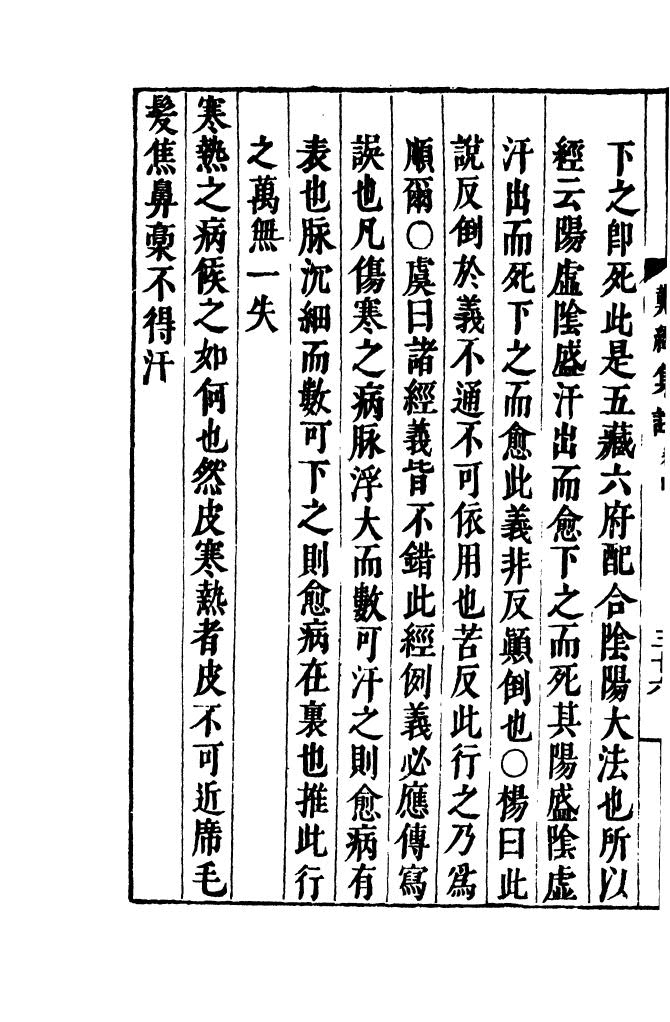 難經集註
三十六
下之卽死此是五藏六府配合陰陽大法也所以
經云陽虛陰盛汗出而愈下之而死其陽盛陰虛
汗出而死下之而愈此義非反顚倒也○楊曰此
說反倒於義不通不可依用也苦反此行之乃爲
順爾○虞曰諸經義皆不錯此經例義必應傳寫
誤也凡傷寒之病脉浮大而數可汗之則愈病有
表也脉沉細而數可下之則愈病在裏也推此行
之萬無一失
寒熱之病候之如何也然皮寒熱者皮不可近席毛
髮焦鼻槀不得汗